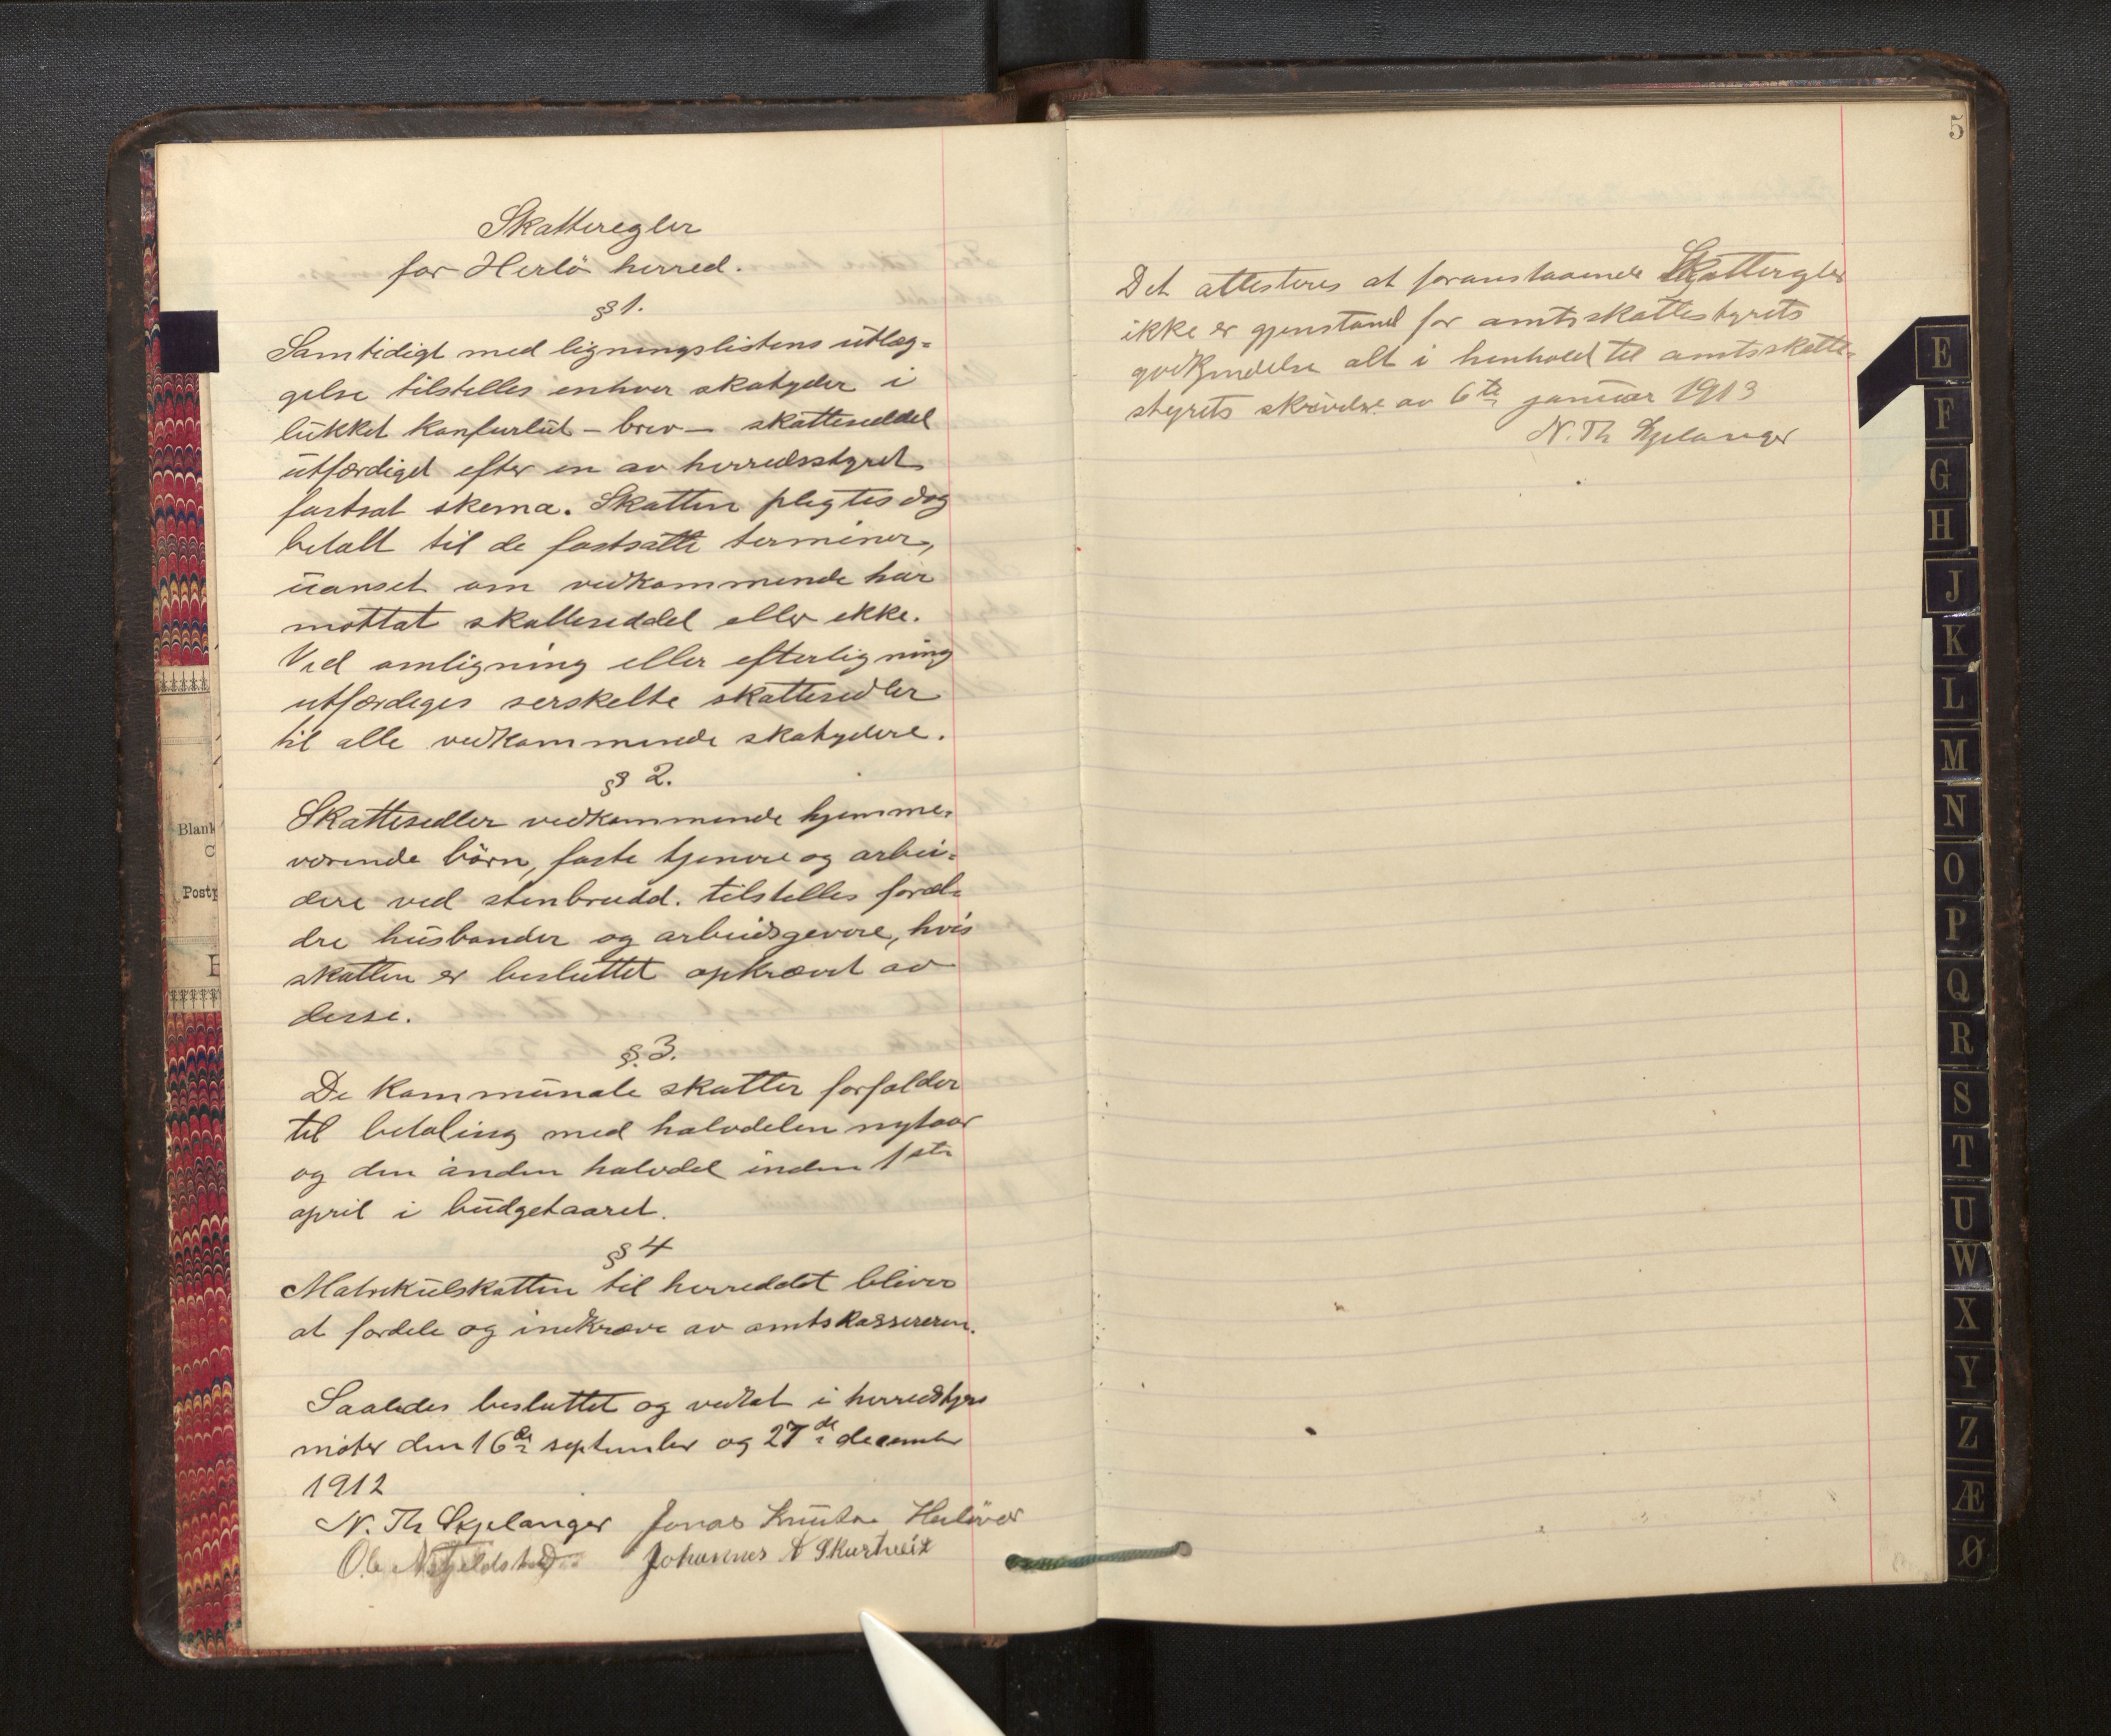 Skatteregler
for Herlö herred.
§ 1.
Samtidigt med ligningslistens utlæg-
gelse tilstilles enhver skatyder i
lukket konfurlut – brev – skatteseddel
utfærdiget efter en av herredsstyret
fastsat skema. Skatten pligtes dog
betalt til de fastsatte terminer,
uanset om vedkommende har
mottat skatteseddel eller ikke.
Ved omligning eller efterligning
utfærdiges serskelte skattesedler
til alle vedkommende skatydere.
§ 2.
Skattesedler vedkommende hjemme-
værende börn, faste tjenere og arbei-
dere ved stenbrudd. tilstilles foræl-
dre husbonder og arbeidsgevere, hvis
skatten er besluttet opkrævet av
disse.
§. 3.
De kommunale skatter forfalder
til betaling med halvdelen nytaar
og den anden halvdel inden 1ste
april i budgetaaret.
§ 4
Matrikulskatten til herreddet bliver
at fordele og inkræve av amtskassereren.
Saaledes besluttet og vedtat i herredstyrs
möter den 16de september og 27de december
1912
N. Th Skjelanger Jonas Knutsen Herlöver
Ole N Johannes A Skurtveit
5
Det attesteres at foranstaaende Skatteregler
ikke er gjenstand for amtsskattestyrets
godkjendelse alt i henhold til amtsskatte-
styrets skrivelse av 6te januar 1913
N. Th Skjelanger
E
F
G
H
J
K
L
M
N
O
P
Q
R
S
T
U
W
X
Y
Z
Æ
Ø
Blank
C
Postp